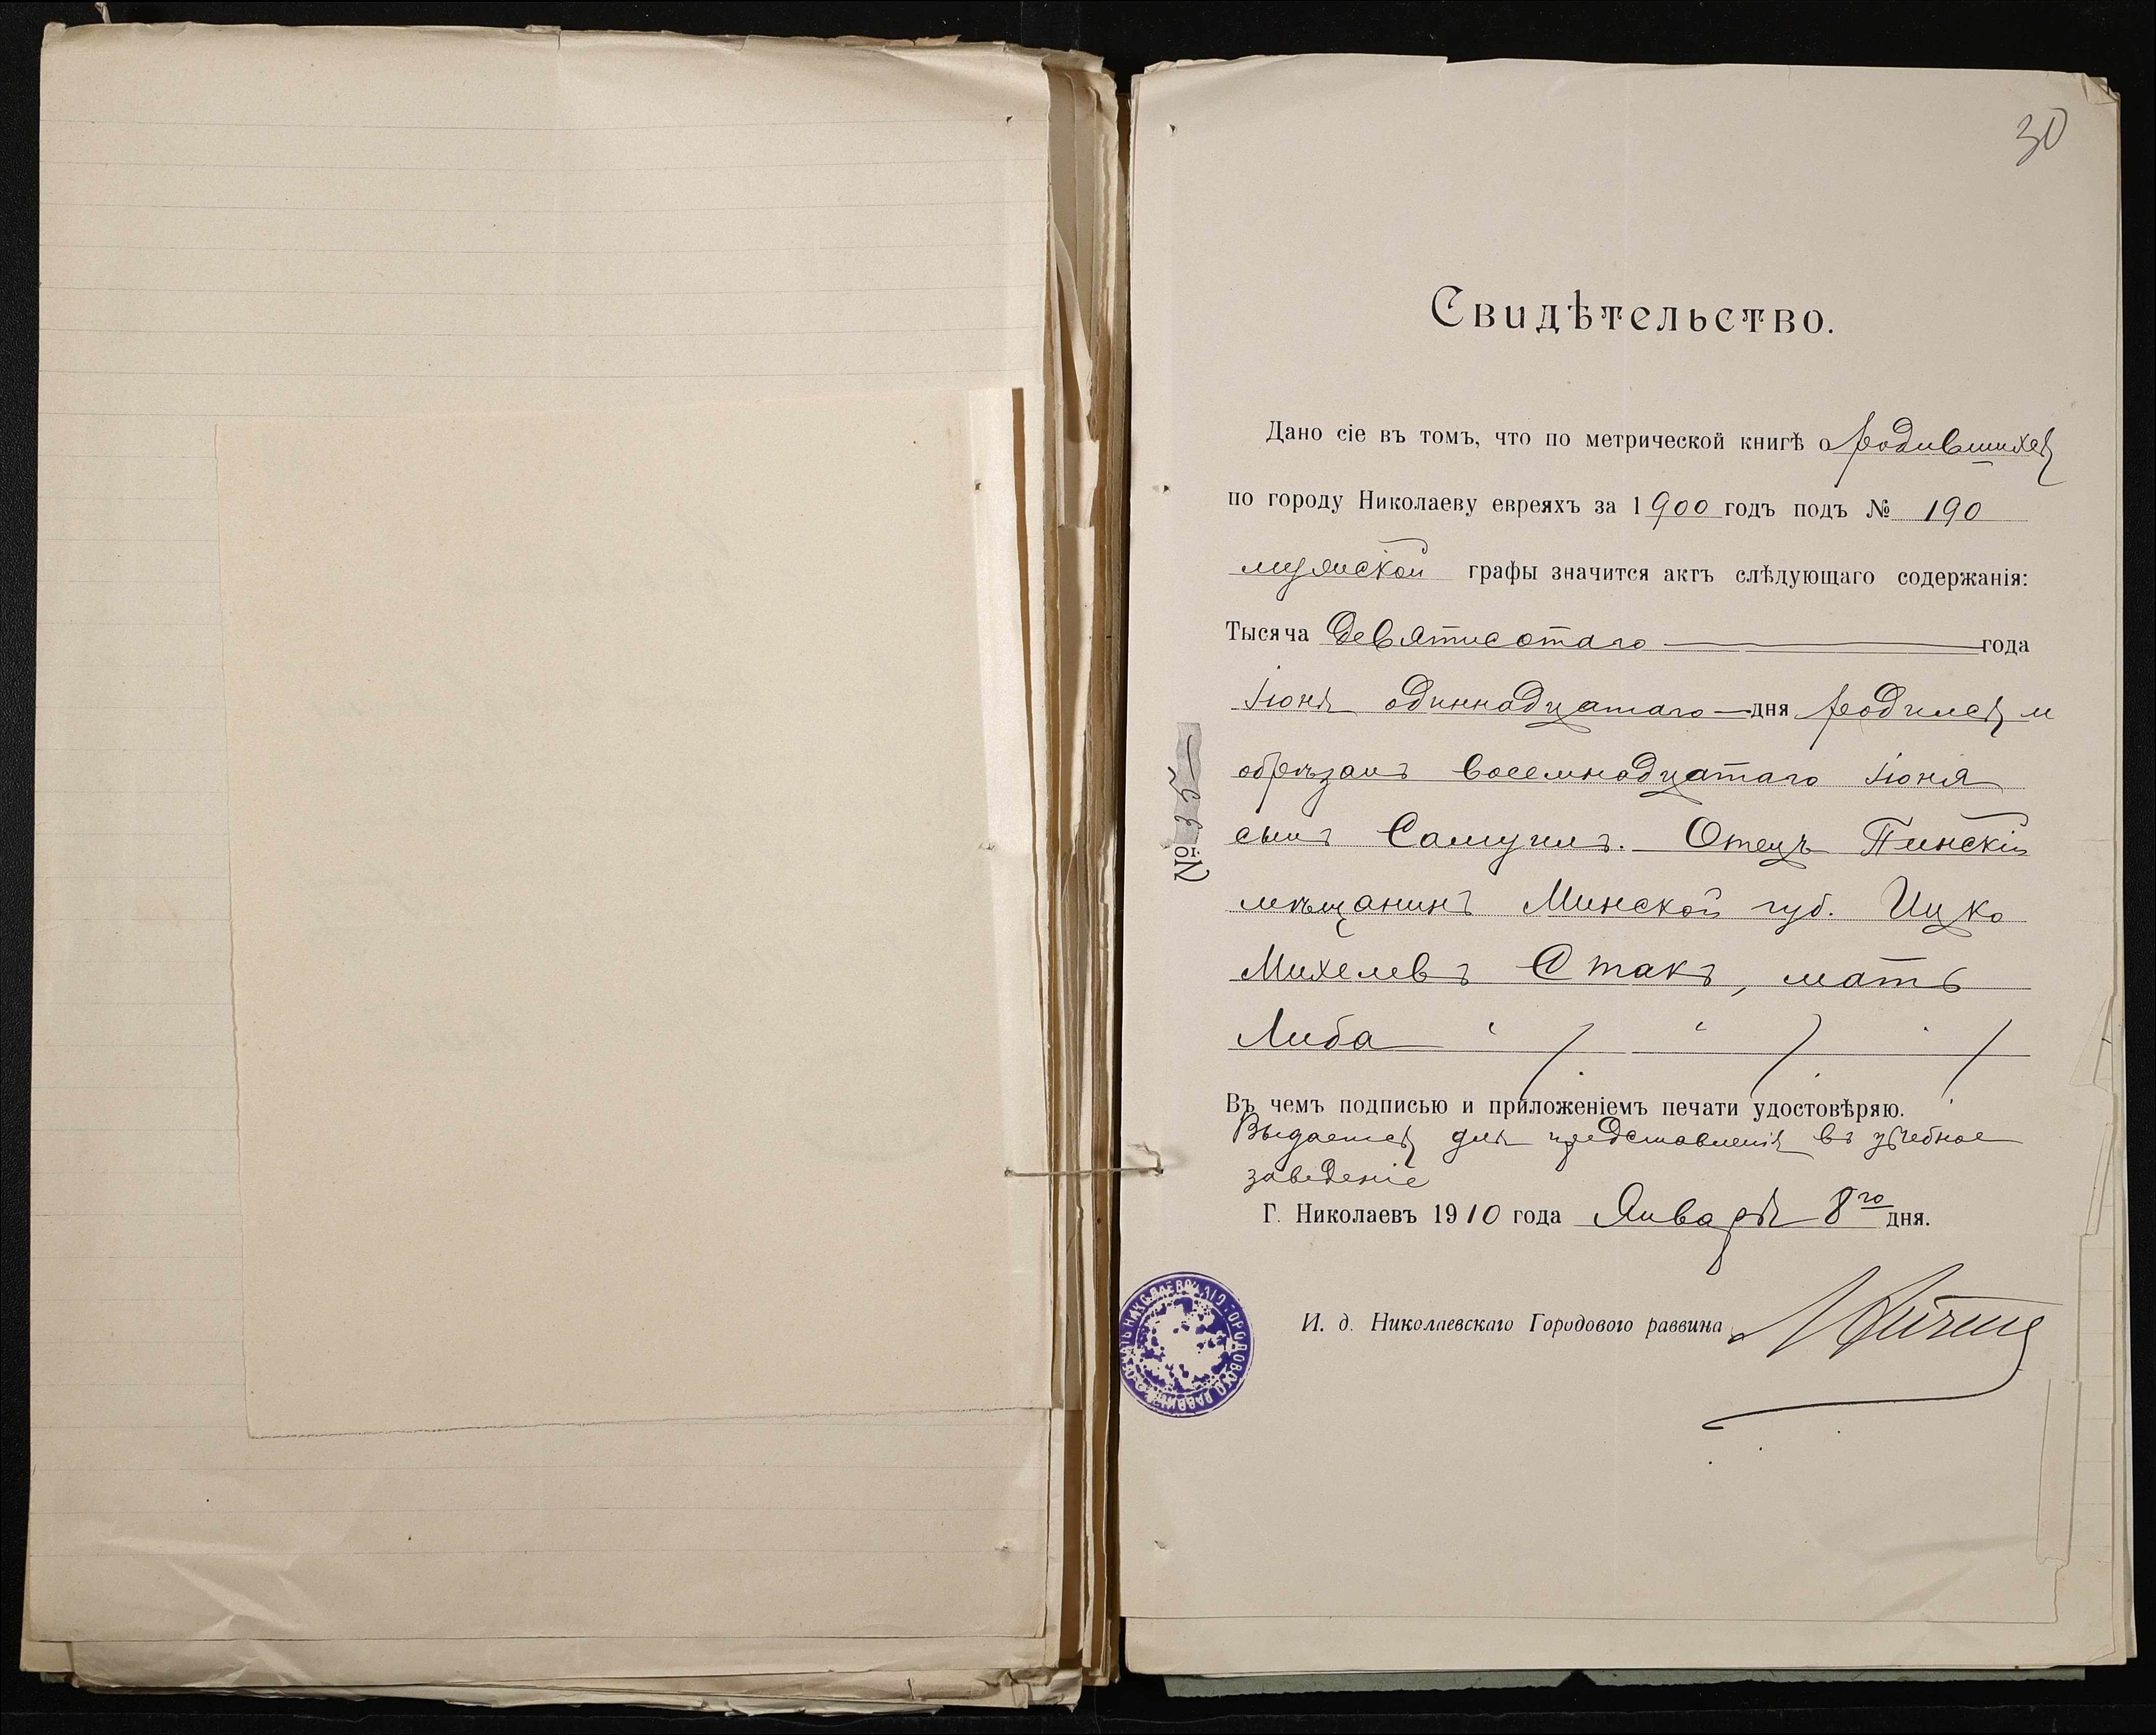 30
Свидѣтельство.
Дано сіе въ томъ, что по метрической книгѣ о родившихся
по городу Николаеву евреяхъ за 1900 годъ подъ № 190
мужской графы значится актъ слѣдующаго содержанія:
Тысяча девятисотаго года
Іюня одиннадцатаго дня родился и
обрѣзанъ восемнадцатаго Іюня
сынъ Самуилъ. Отецъ Пинскій
мѣщанинъ Минской губ. Ицко
Михелевъ Стакъ, мать
Либа
Въ чемъ подписью и приложеніемъ печати удостовѣряю.
Выдается для представленія въ учебное
заведеніе
Г. Николаевъ 1910 года Января 8го дня.
И. д. Николаевскаго Городового раввина
№
ПЕЧАТЬ НИКОЛАЕВСКАГО ГОРОДОВОГО РАВВИНА